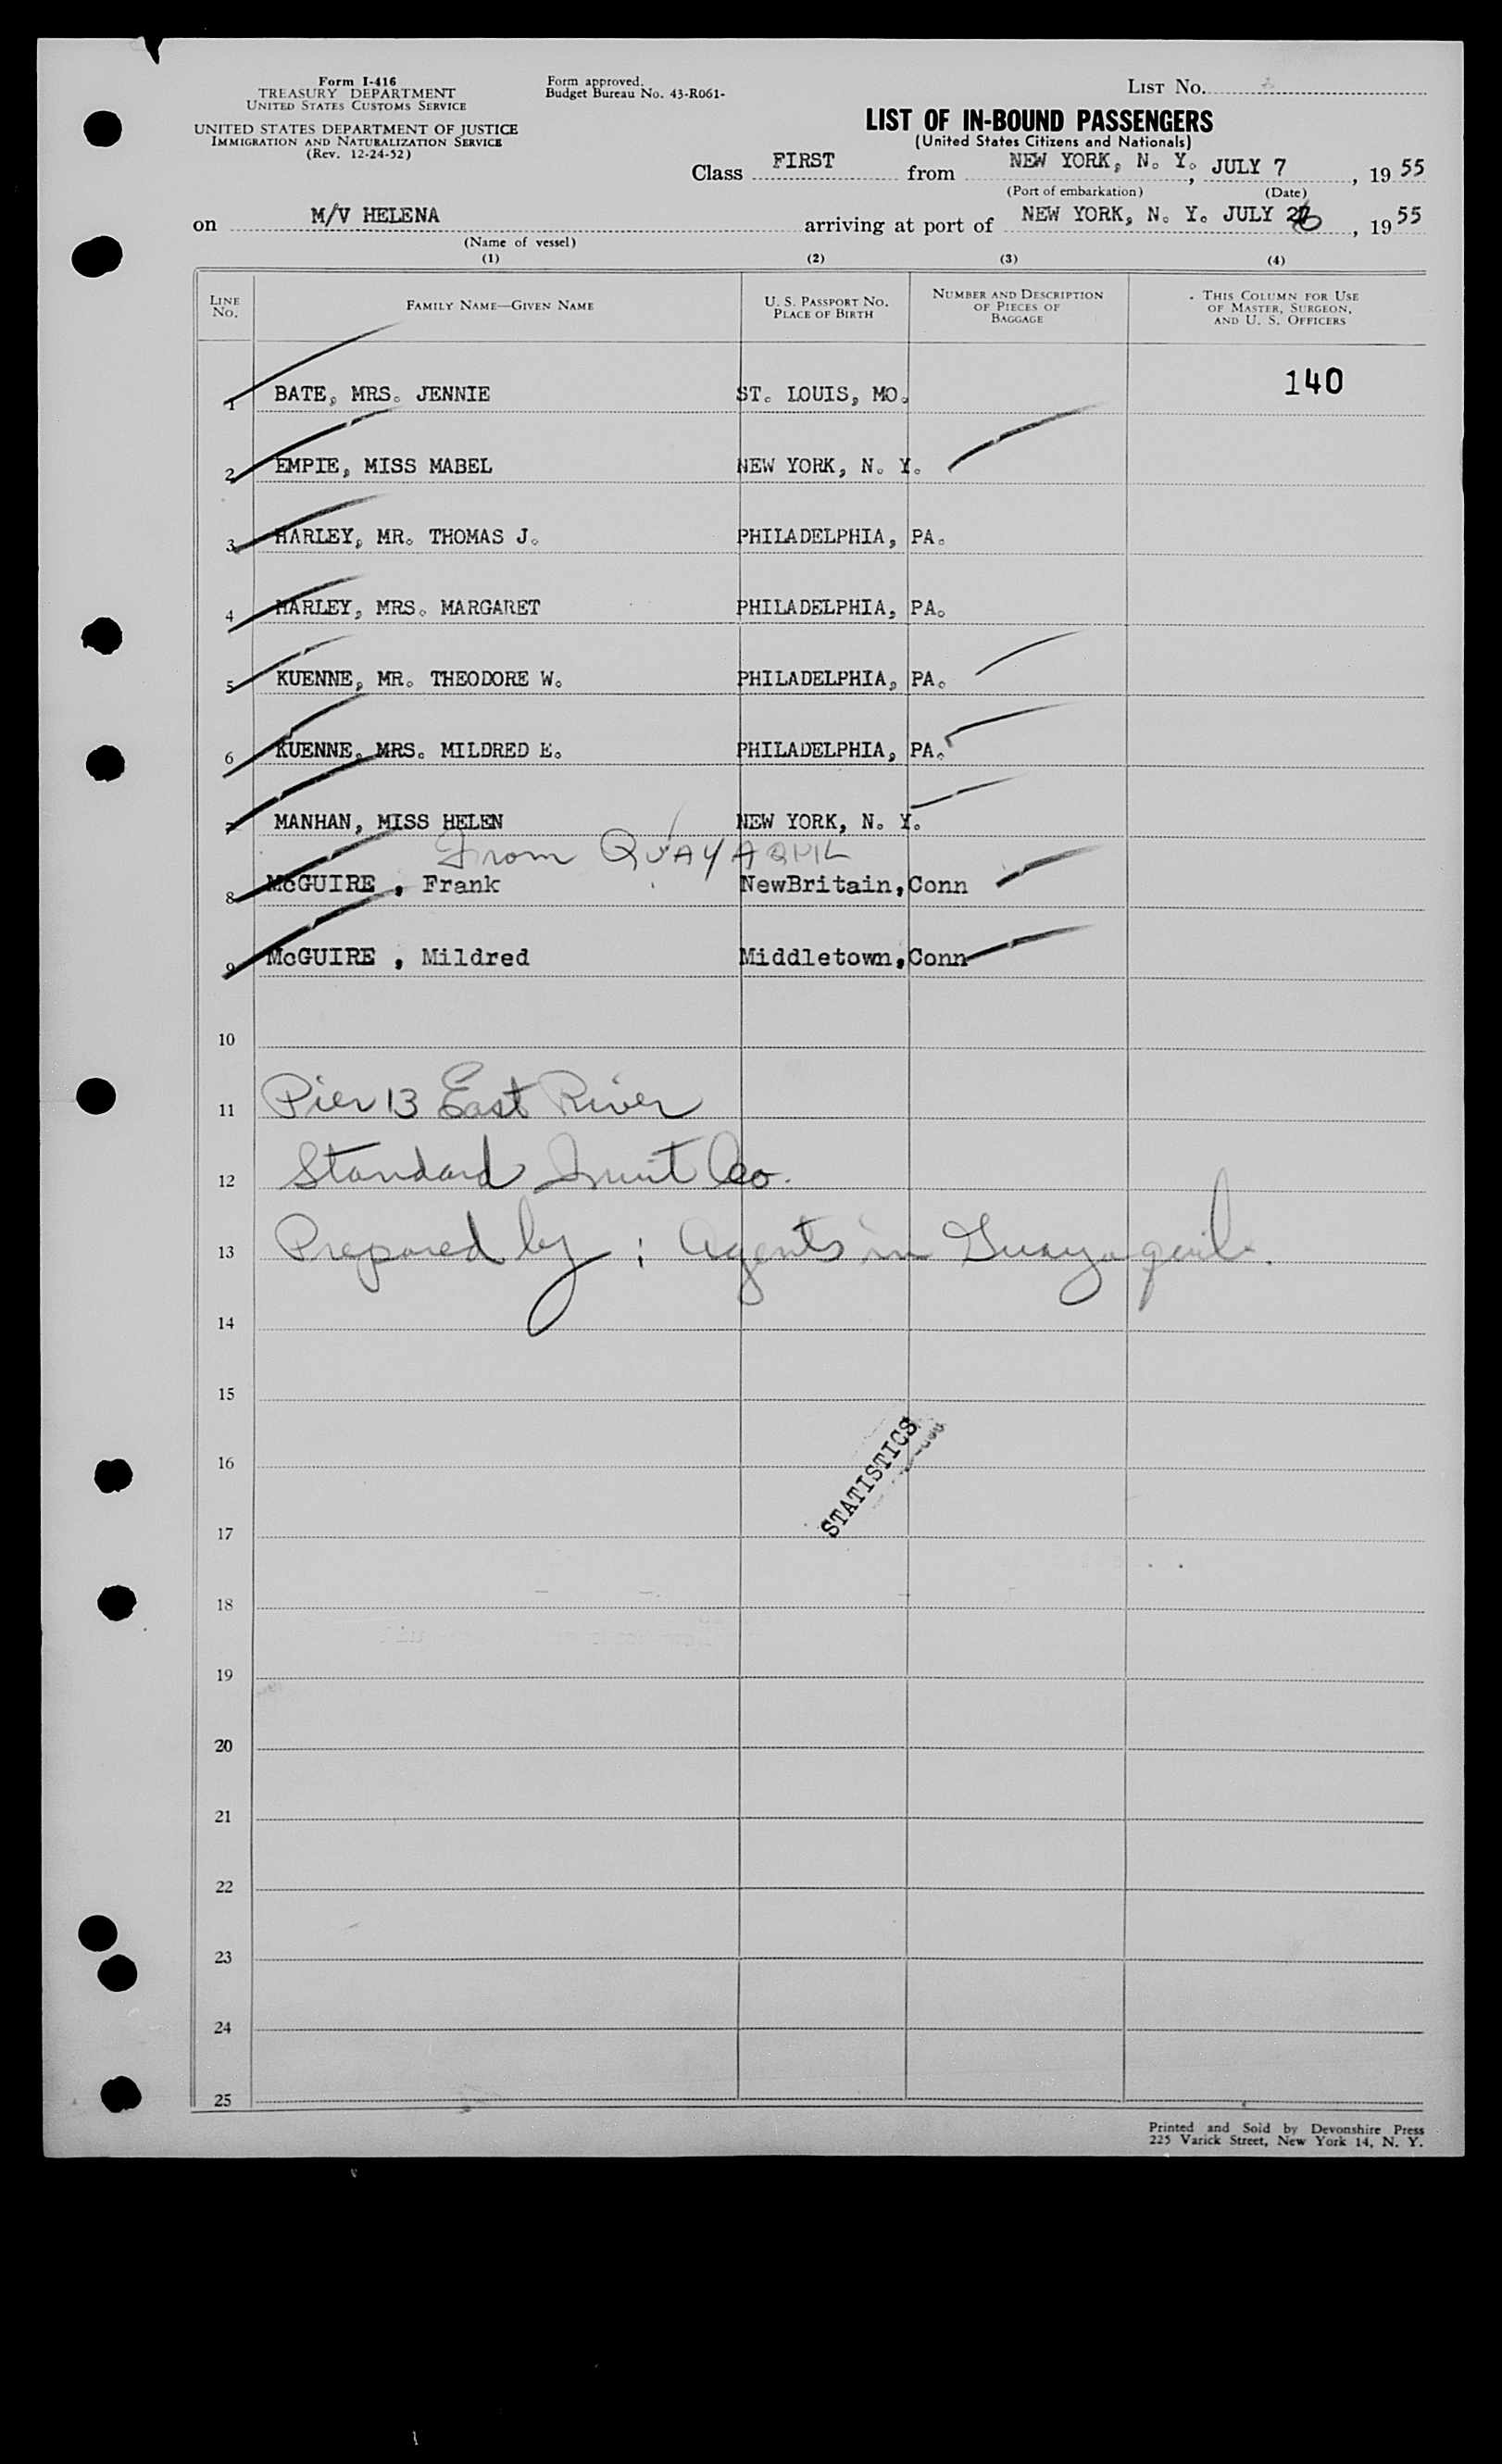 Form I-416
TREASURY DEPARTMENT
UNITED STATES CUSTOMS SERVICE
UNITED STATES DEPARTMENT OF JUSTICE
IMMIGRATION AND NATURALIZATION SERVICE
(Rev. 12-24-52)
Form approved.
Budget Bureau No. 43-R061-
LIST No.
LIST OF IN-BOUND PASSENGERS
(United States Citizens and Nationals)
Class FIRST from NEW YORK, N. Y., JULY 7, 1955
(Port of embarkation) (Date)
on M/V HELENA arriving at port of NEW YORK, N. Y. JULY 26, 1955
(Name of vessel)
(1) (2) (3) (4)
LINE No.
FAMILY NAME—GIVEN NAME
U. S. PASSPORT NO.
PLACE OF BIRTH
NUMBER AND DESCRIPTION
OF PIECES OF
BAGGAGE
THIS COLUMN FOR USE
OF MASTER, SURGEON,
AND U. S. OFFICERS
140
1 BATE, MRS. JENNIE ST. LOUIS, MO.
2 EMPIE, MISS MABEL NEW YORK, N. Y.
3 HARLEY, MR. THOMAS J. PHILADELPHIA, PA.
4 HARLEY, MRS. MARGARET PHILADELPHIA, PA.
5 KUENNE, MR. THEODORE W. PHILADELPHIA, PA.
6 KUENNE, MRS. MILDRED E. PHILADELPHIA, PA.
7 MANHAN, MISS HELEN NEW YORK, N. Y.
From QUAYAQUIL
8 McGUIRE , Frank NewBritain,Conn
9 McGUIRE , Mildred Middletown,Conn
10
11 Pier 13 East River
12 Standard Fruit Co.
13 Prepared by ; Agents in Guayaquil.
14
15
16
STATISTICS
17
18
19
20
21
22
23
24
25
Printed and Sold by Devonshire Press
225 Varick Street, New York 14, N. Y.